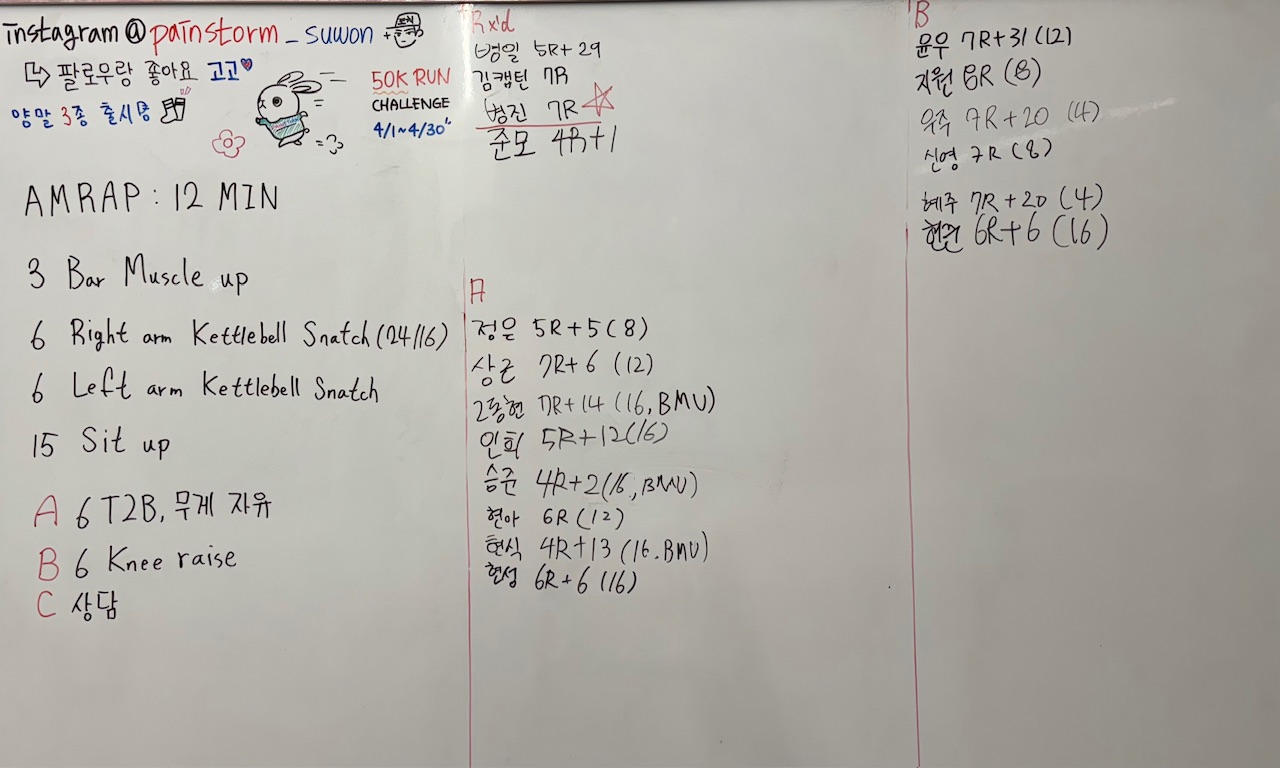 instagram@painstorm_suwon
팔로우랑 좋아요 고고
양말 3종 출시중
50K RUN
CHALLENGE
4/1~4/30"
AMRAP : 12 MIN
3 Bar Muscle up
6 Right arm Kettlebell Snatch (24/16)
6 Left arm Kettlebell Snatch
15 Sit up
A 6 T2B, 무게 자유
B 6 Knee raise
C 상담
Rx'd
병일 5R+29
김캡틴 7R
병진 7R
준모 4R+1
A
정은 5R+5 (8)
상근 7R+6 (12)
2동현 7R+14 (16, BMU)
인희 5R+12(16)
승준 4R+2(16, BMU)
현아 6R (12)
현식 4R+13 (16. BMU)
현성 6R+6 (16)
B
윤우 7R+31 (12)
지원 8R (8)
우주 7R+20 (4)
신영 7R (8)
혜주 7R+20 (4)
6R+6 (16)